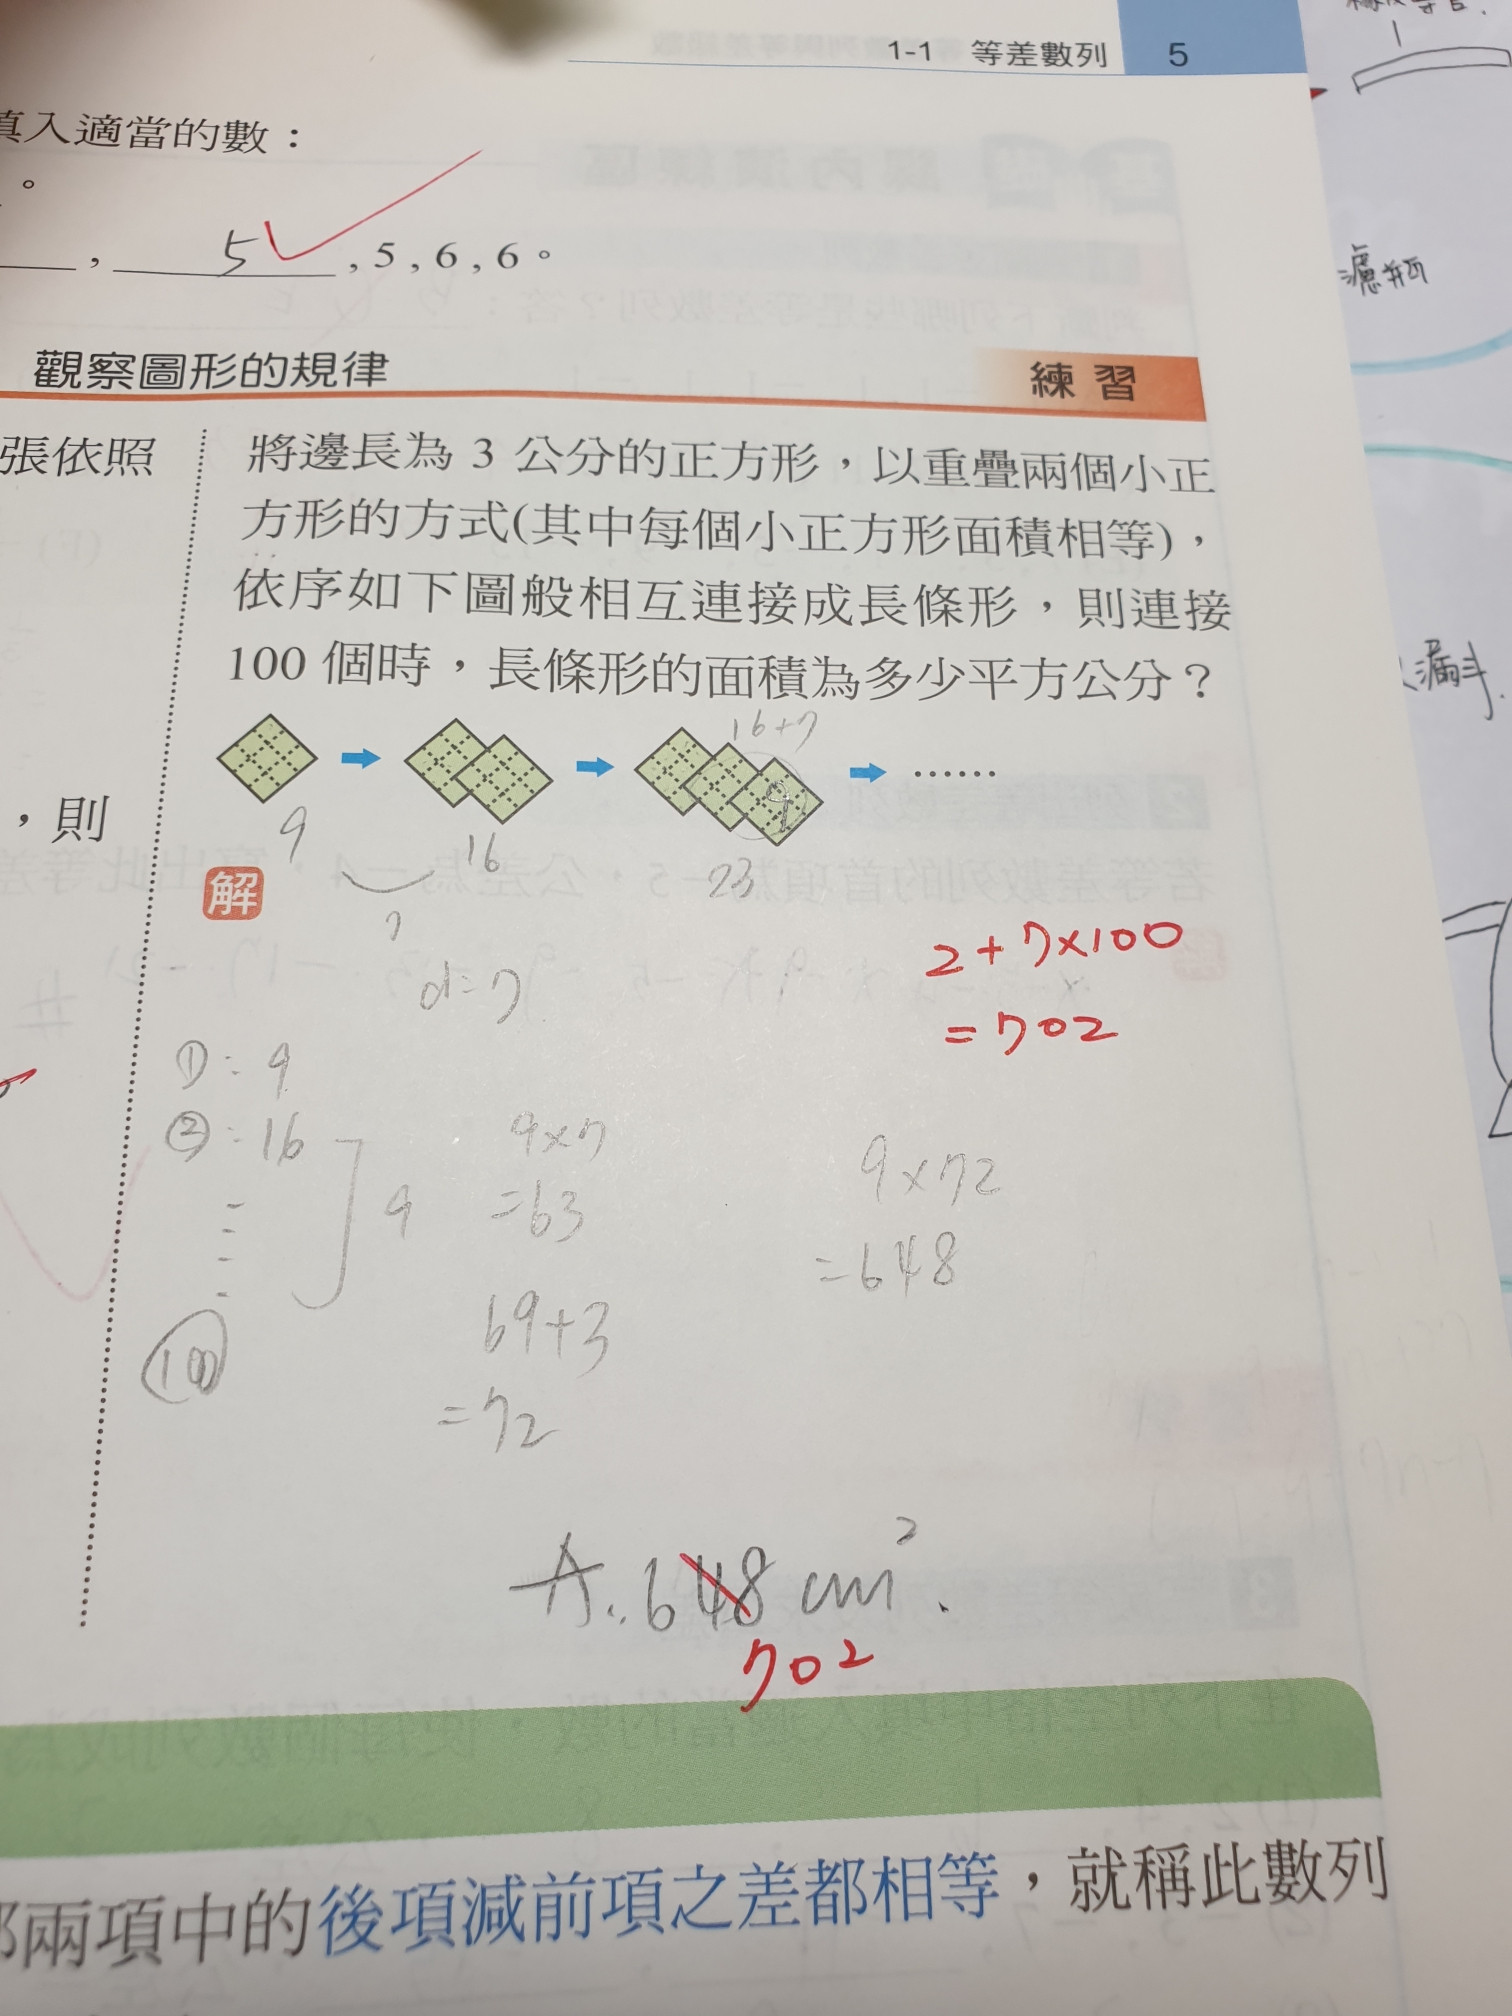 1-1 等差數列 5
填入適當的數：
。
, 5 , 5 , 6 , 6 。
濾瓶
觀察圖形的規律
練習
張依照
將邊長為 3 公分的正方形，以重疊兩個小正
方形的方式(其中每個小正方形面積相等)，
依序如下圖般相互連接成長條形，則連接
100 個時，長條形的面積為多少平方公分？
漏斗.
16+7
……
，則
9
16
23
解
7
d=7
2+7×100
=702
①：9
②：16
9
100
9×7
=63
69+3
=72
9×72
=648
A：648 cm².
702
兩項中的後項減前項之差都相等，就稱此數列